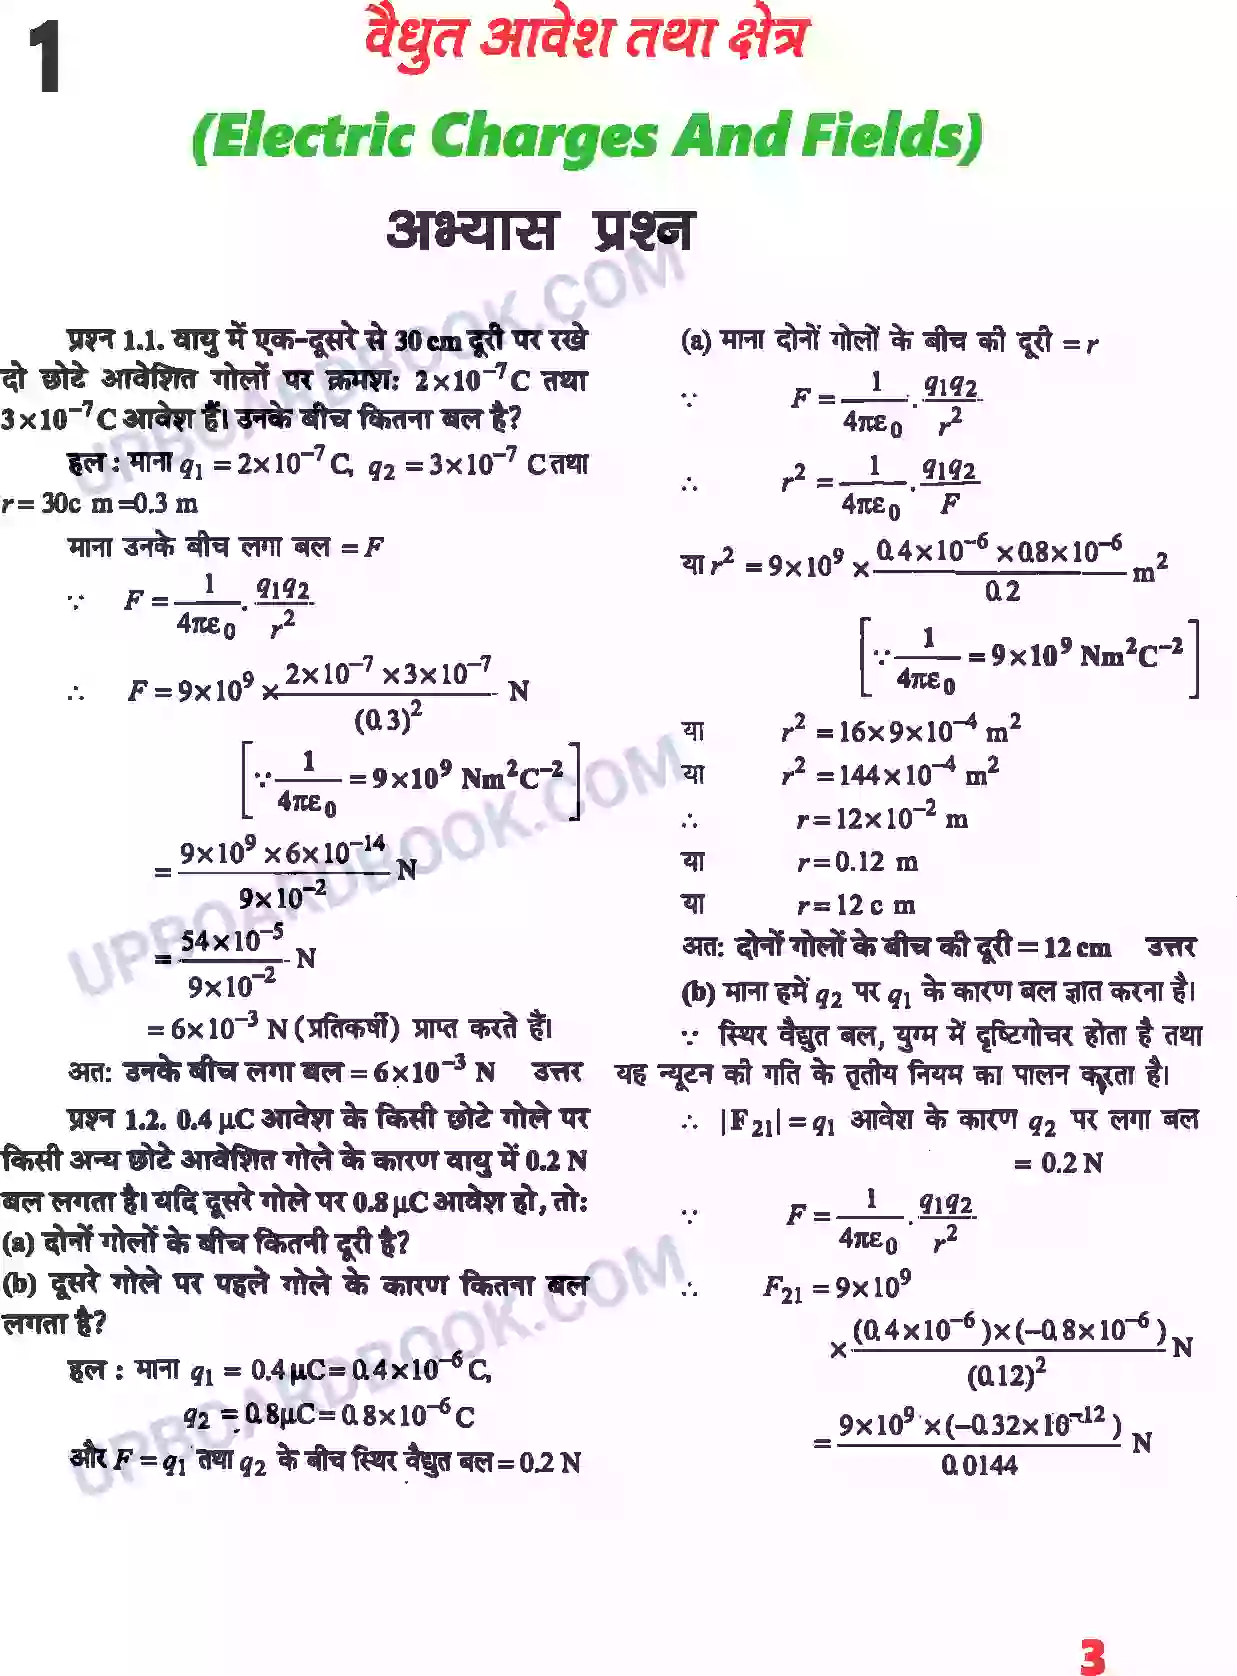 1
वैद्युत आवेश तथा क्षेत्र
(Electric Charges And Fields)
अभ्यास प्रश्न
प्रश्न 1.1. वायु में एक-दूसरे से 30 cm दूरी पर रखे
दो छोटे आवेशित गोलों पर क्रमशः 2×10⁻⁷ C तथा
3×10⁻⁷ C आवेश हैं। उनके बीच कितना बल है?
हल : माना q₁ = 2×10⁻⁷ C, q₂ = 3×10⁻⁷ C तथा
r = 30c m =0.3 m
माना उनके बीच लगा बल = F
∵ F = 1/4πε₀ . q₁q₂/r²
∴ F = 9×10⁹ × 2×10⁻⁷ ×3×10⁻⁷/(0.3)² N
[∵ 1/4πε₀ = 9×10⁹ Nm²C⁻²]
= 9×10⁹ ×6×10⁻¹⁴/9×10⁻² N
= 54×10⁻⁵/9×10⁻² N
= 6×10⁻³ N (प्रतिकर्षी) प्राप्त करते हैं।
अतः उनके बीच लगा बल = 6×10⁻³ N उत्तर
प्रश्न 1.2. 0.4 μC आवेश के किसी छोटे गोले पर
किसी अन्य छोटे आवेशित गोले के कारण वायु में 0.2 N
बल लगता है। यदि दूसरे गोले पर 0.8 μC आवेश हो, तो:
(a) दोनों गोलों के बीच कितनी दूरी है?
(b) दूसरे गोले पर पहले गोले के कारण कितना बल
लगता है?
हल : माना q₁ = 0.4 μC = 0.4×10⁻⁶ C,
q₂ = 0.8μC = 0.8×10⁻⁶ C
और F = q₁ तथा q₂ के बीच स्थिर वैद्युत बल = 0.2 N
(a) माना दोनों गोलों के बीच की दूरी = r
∵ F = 1/4πε₀ . q₁q₂/r²
∴ r² = 1/4πε₀ . q₁q₂/F
या r² = 9×10⁹ × 0.4×10⁻⁶ ×0.8×10⁻⁶/0.2 m²
[∵ 1/4πε₀ = 9×10⁹ Nm²C⁻²]
या r² = 16×9×10⁻⁴ m²
या r² = 144×10⁻⁴ m²
∴ r = 12×10⁻² m
या r = 0.12 m
या r = 12 c m
अतः दोनों गोलों के बीच की दूरी = 12 cm उत्तर
(b) माना हमें q₂ पर q₁ के कारण बल ज्ञात करना है।
∵ स्थिर वैद्युत बल, युग्म में दृष्टिगोचर होता है तथा
यह न्यूटन की गति के तृतीय नियम का पालन करता है।
∴ |F₂₁| = q₁ आवेश के कारण q₂ पर लगा बल
= 0.2 N
∵ F = 1/4πε₀ . q₁q₂/r²
∴ F₂₁ = 9×10⁹
× (0.4×10⁻⁶)×(−0.8×10⁻⁶)/(0.12)² N
= 9×10⁹ ×(−0.32×10⁻¹²)/0.0144 N
3
UPBOARDBOOK.COM
UPBOARDBOOK.COM
UPBOARDBOOK.COM